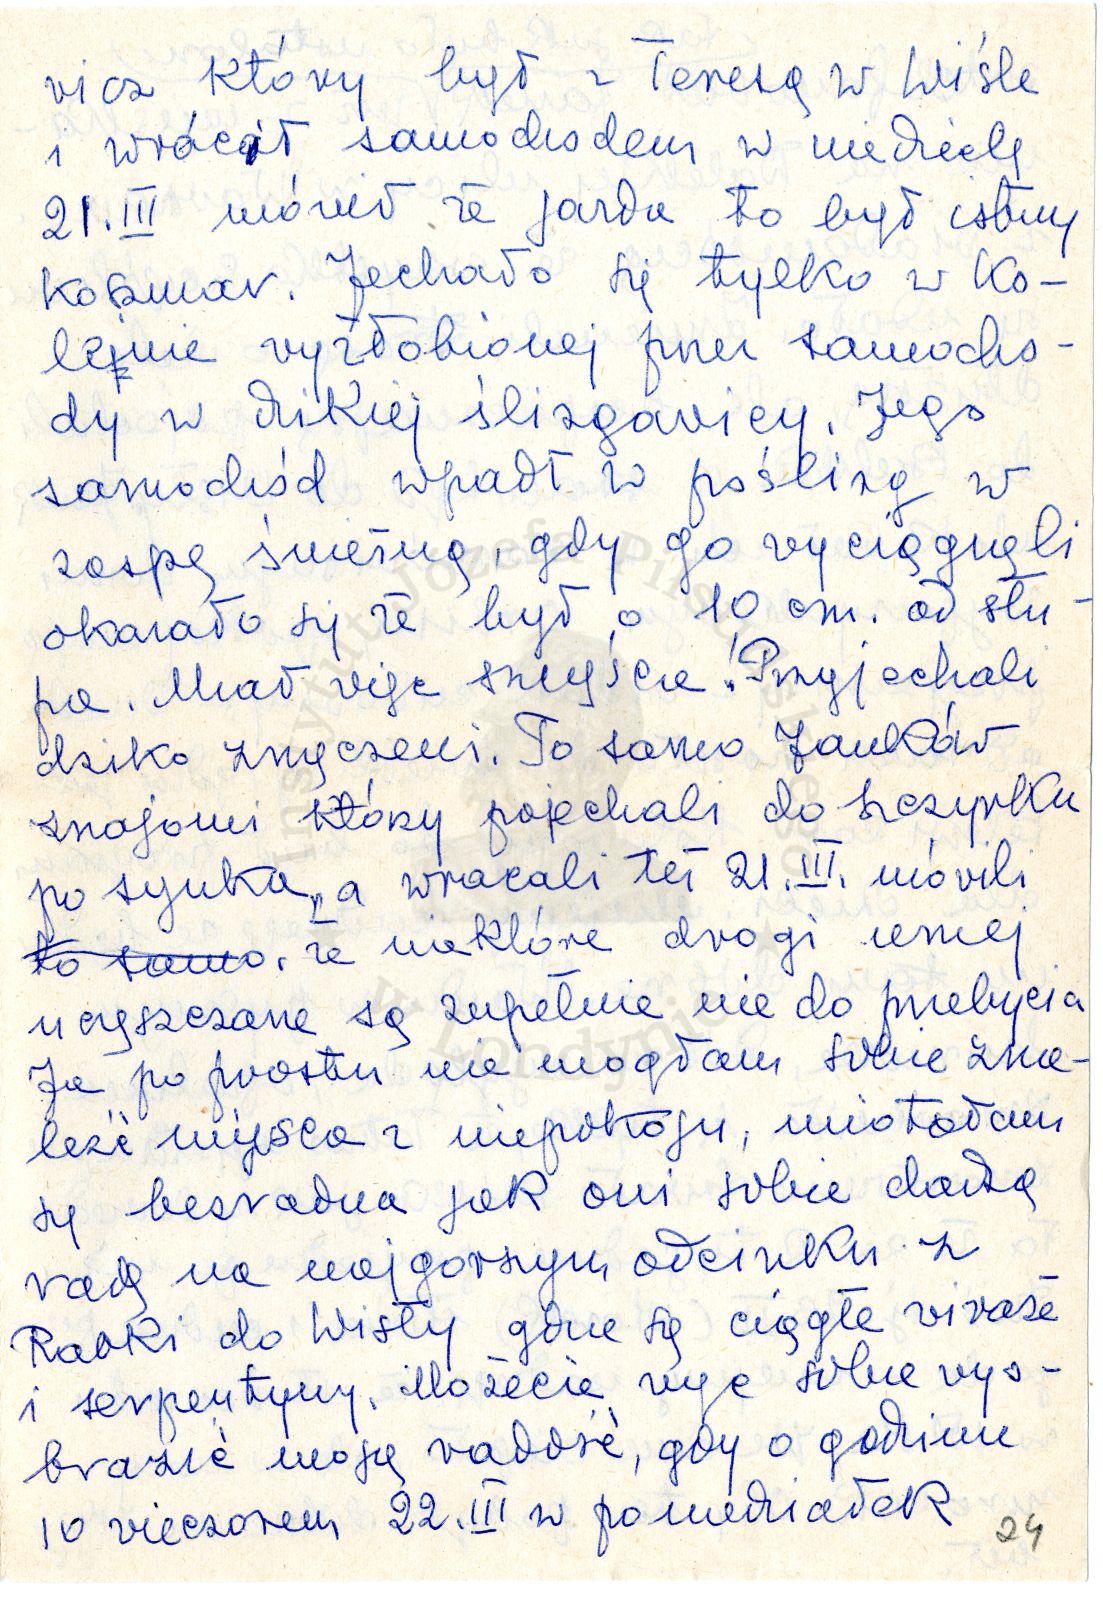 wicz który był z Teresą w Wiśle
i wrócił samochodem w niedzielę
21.III mówił że jazda to był istny
koszmar. Jechało się tylko w ko-
lejnie wyżłobionej przez samocho-
dy w dzikiej ślizgawicy. Jego
samochód wpadł w poślizg w
zaspę śnieżną, gdy go wyciągnęli
okazało się że był o 10 cm. od słu-
pa. Miał więc szczęście! Przyjechali
dziko zmęczeni. To samo Janków
znajomi którzy pojechali do Szczyrku
po synka, a wracali też 21.III. mówili
to samo. że niektóre drogi mniej
uczęszczane są zupełnie nie do przebycia
Ja po prostu nie mogłam sobie zna-
leźć miejsca z niepokoju, miotałam
się bezradna jak oni sobie dadzą
radę na najgorszym odcinku z
Rabki do Wisły gdzie są ciągłe wiraże
i serpentyny. Możecie więc sobie wyo-
brazić moją radość, gdy o godzinie
10 wieczorem 22.III w poniedziałek
24
Instytut Józefa Piłsudskiego
w Londynie